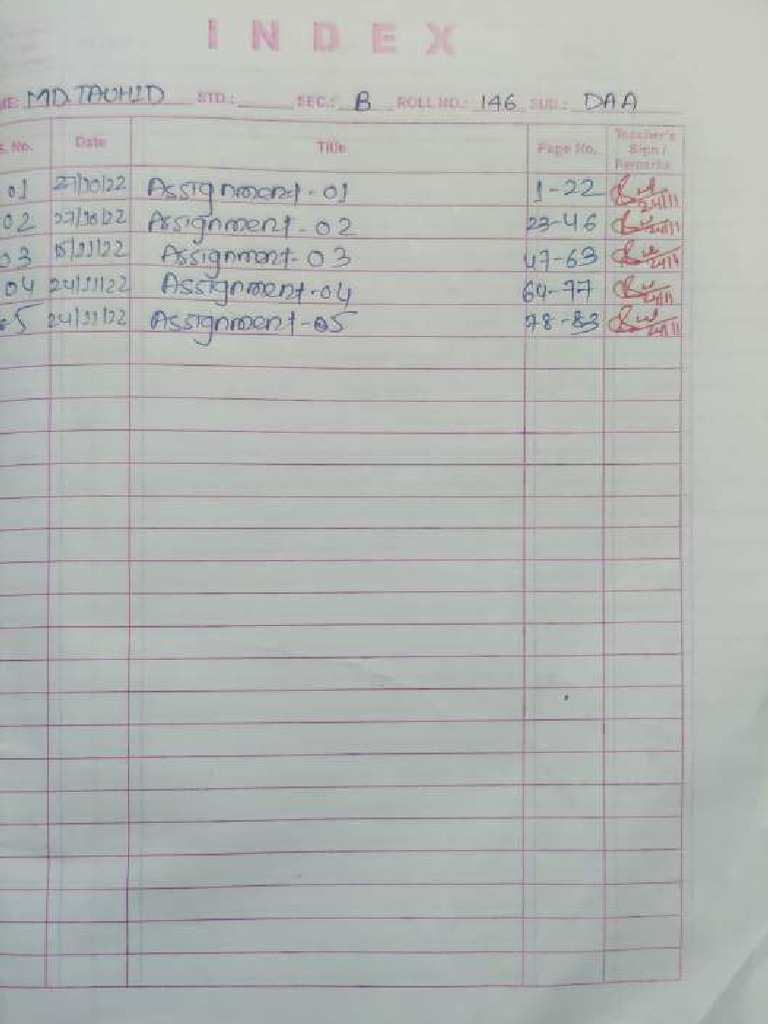 INDEX
ME: MD. TAUHID STD.: SEC.: B ROLL NO.: 146 SUB.: DAA
S. No. Date Title Page No. Teacher's Sign / Remarks
01 27/10/22 Assignment-01 1-22 24/11
02 27/10/22 Assignment-02 23-46 24/11
03 15/11/22 Assignment-03 47-63 24/11
04 24/11/22 Assignment-04 64-77 24/11
05 24/11/22 Assignment-05 78-83 24/11